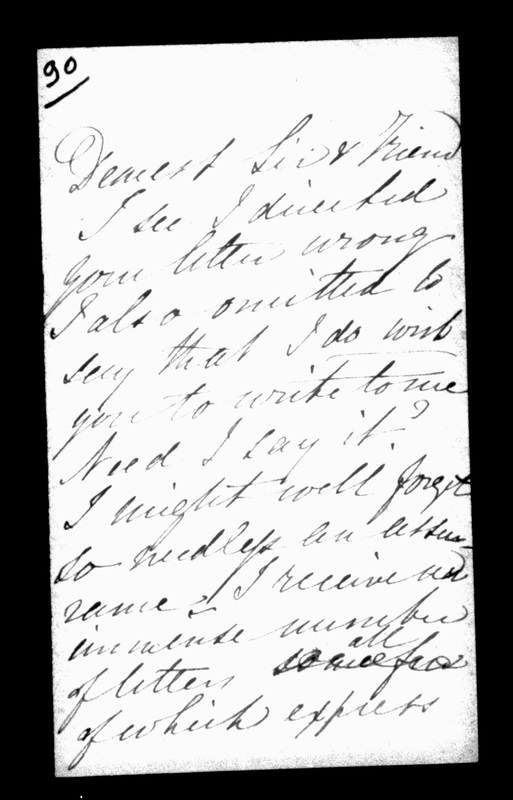 90
Dearest Sir & Friend
I see I directed
your letter wrong
I also omitted to
say that I do wish
you to write to me
Need I say it?
I might well forget
so needless an assu-
rance. I receive an
immense number
all
of letters
of which express